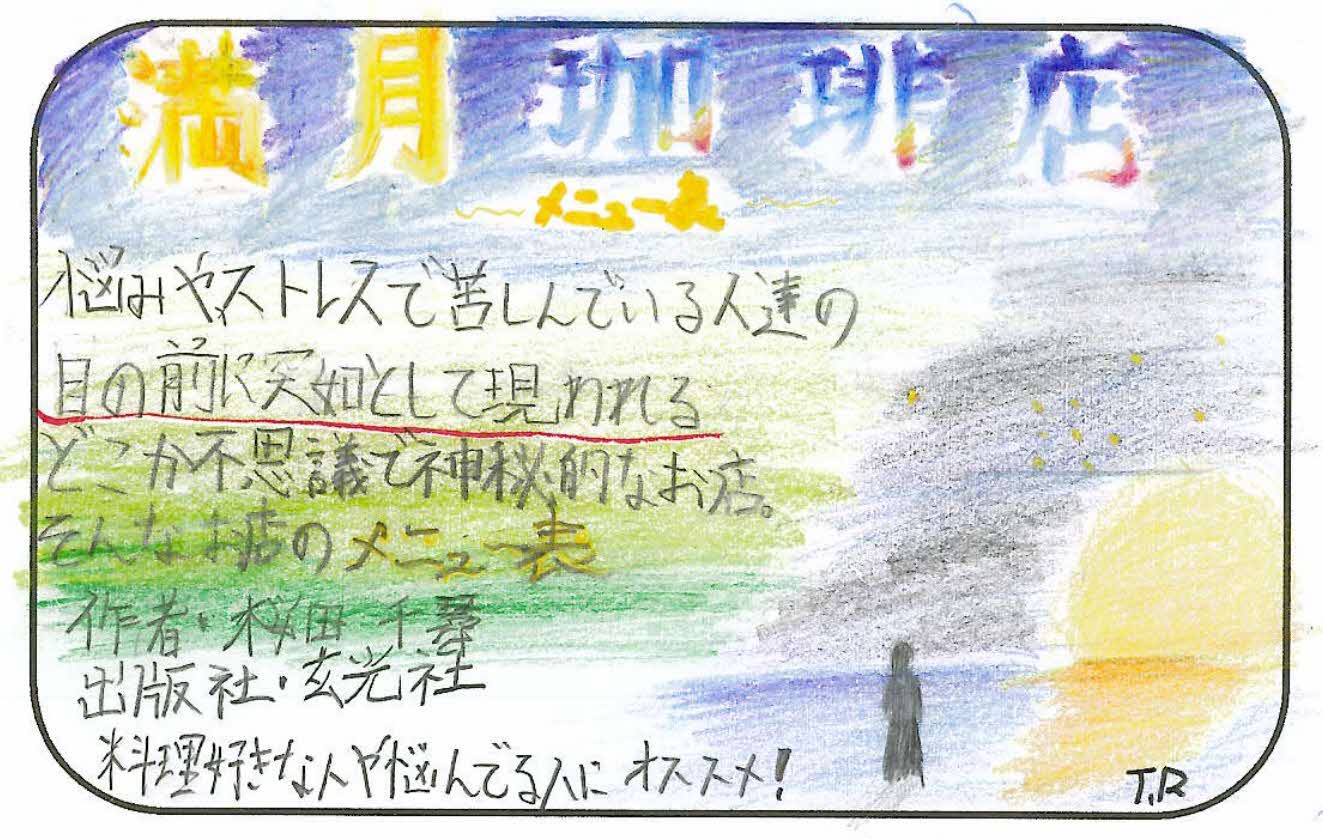 満月珈琲店
メニュー表
悩みやストレスで苦しんでいる人達の
目の前に突如として現われる
どこか不思議で神秘的なお店。
そんなお店のメニュー表
作者・桜田 千尋
出版社・玄光社
料理好きな人や悩んでる人にオススメ!
T.R